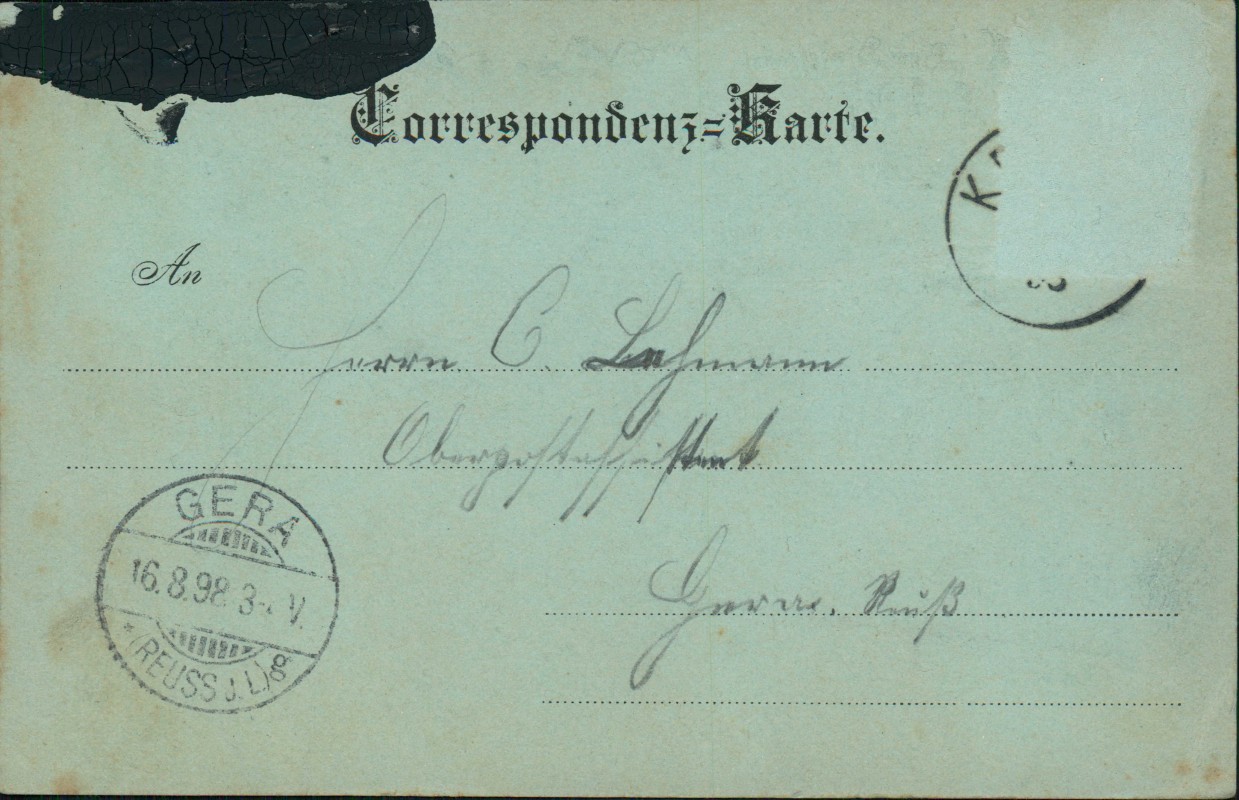 Correspondenz=Karte.
K
An
Herrn C. Lehmann
Oberpostassistent
Gera. Reuß
GERA
16.8.98 3- V.
*(REUSS j. L.)g